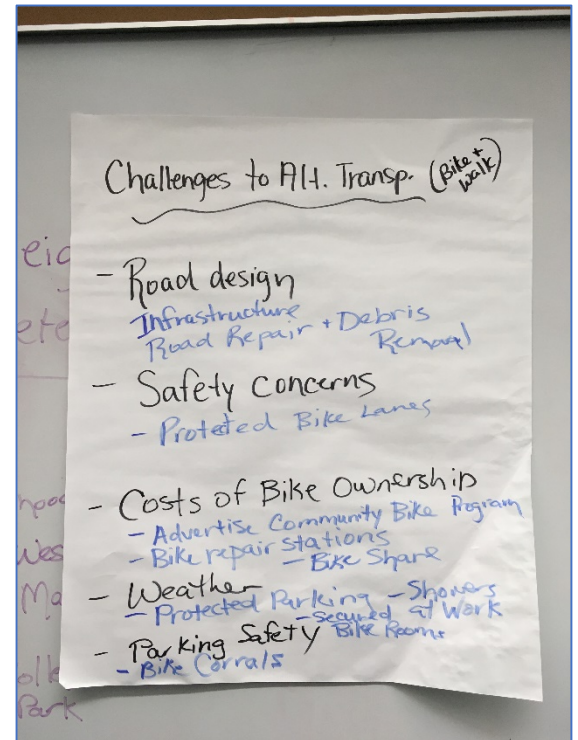 Challenges to Alt. Transp. (Bike + Walk)
- Road design
Infrastructure
Road Repair + Debris Removal
- Safety Concerns
- Proteted Bike Lanes
- Costs of Bike Ownership
- Advertise Community Bike Program
- Bike repair stations - Bike Share
- Weather
- Protected Parking - Showers at Work
- Secured Bike Rooms
- Parking Safety
- Bike Corrals
Park